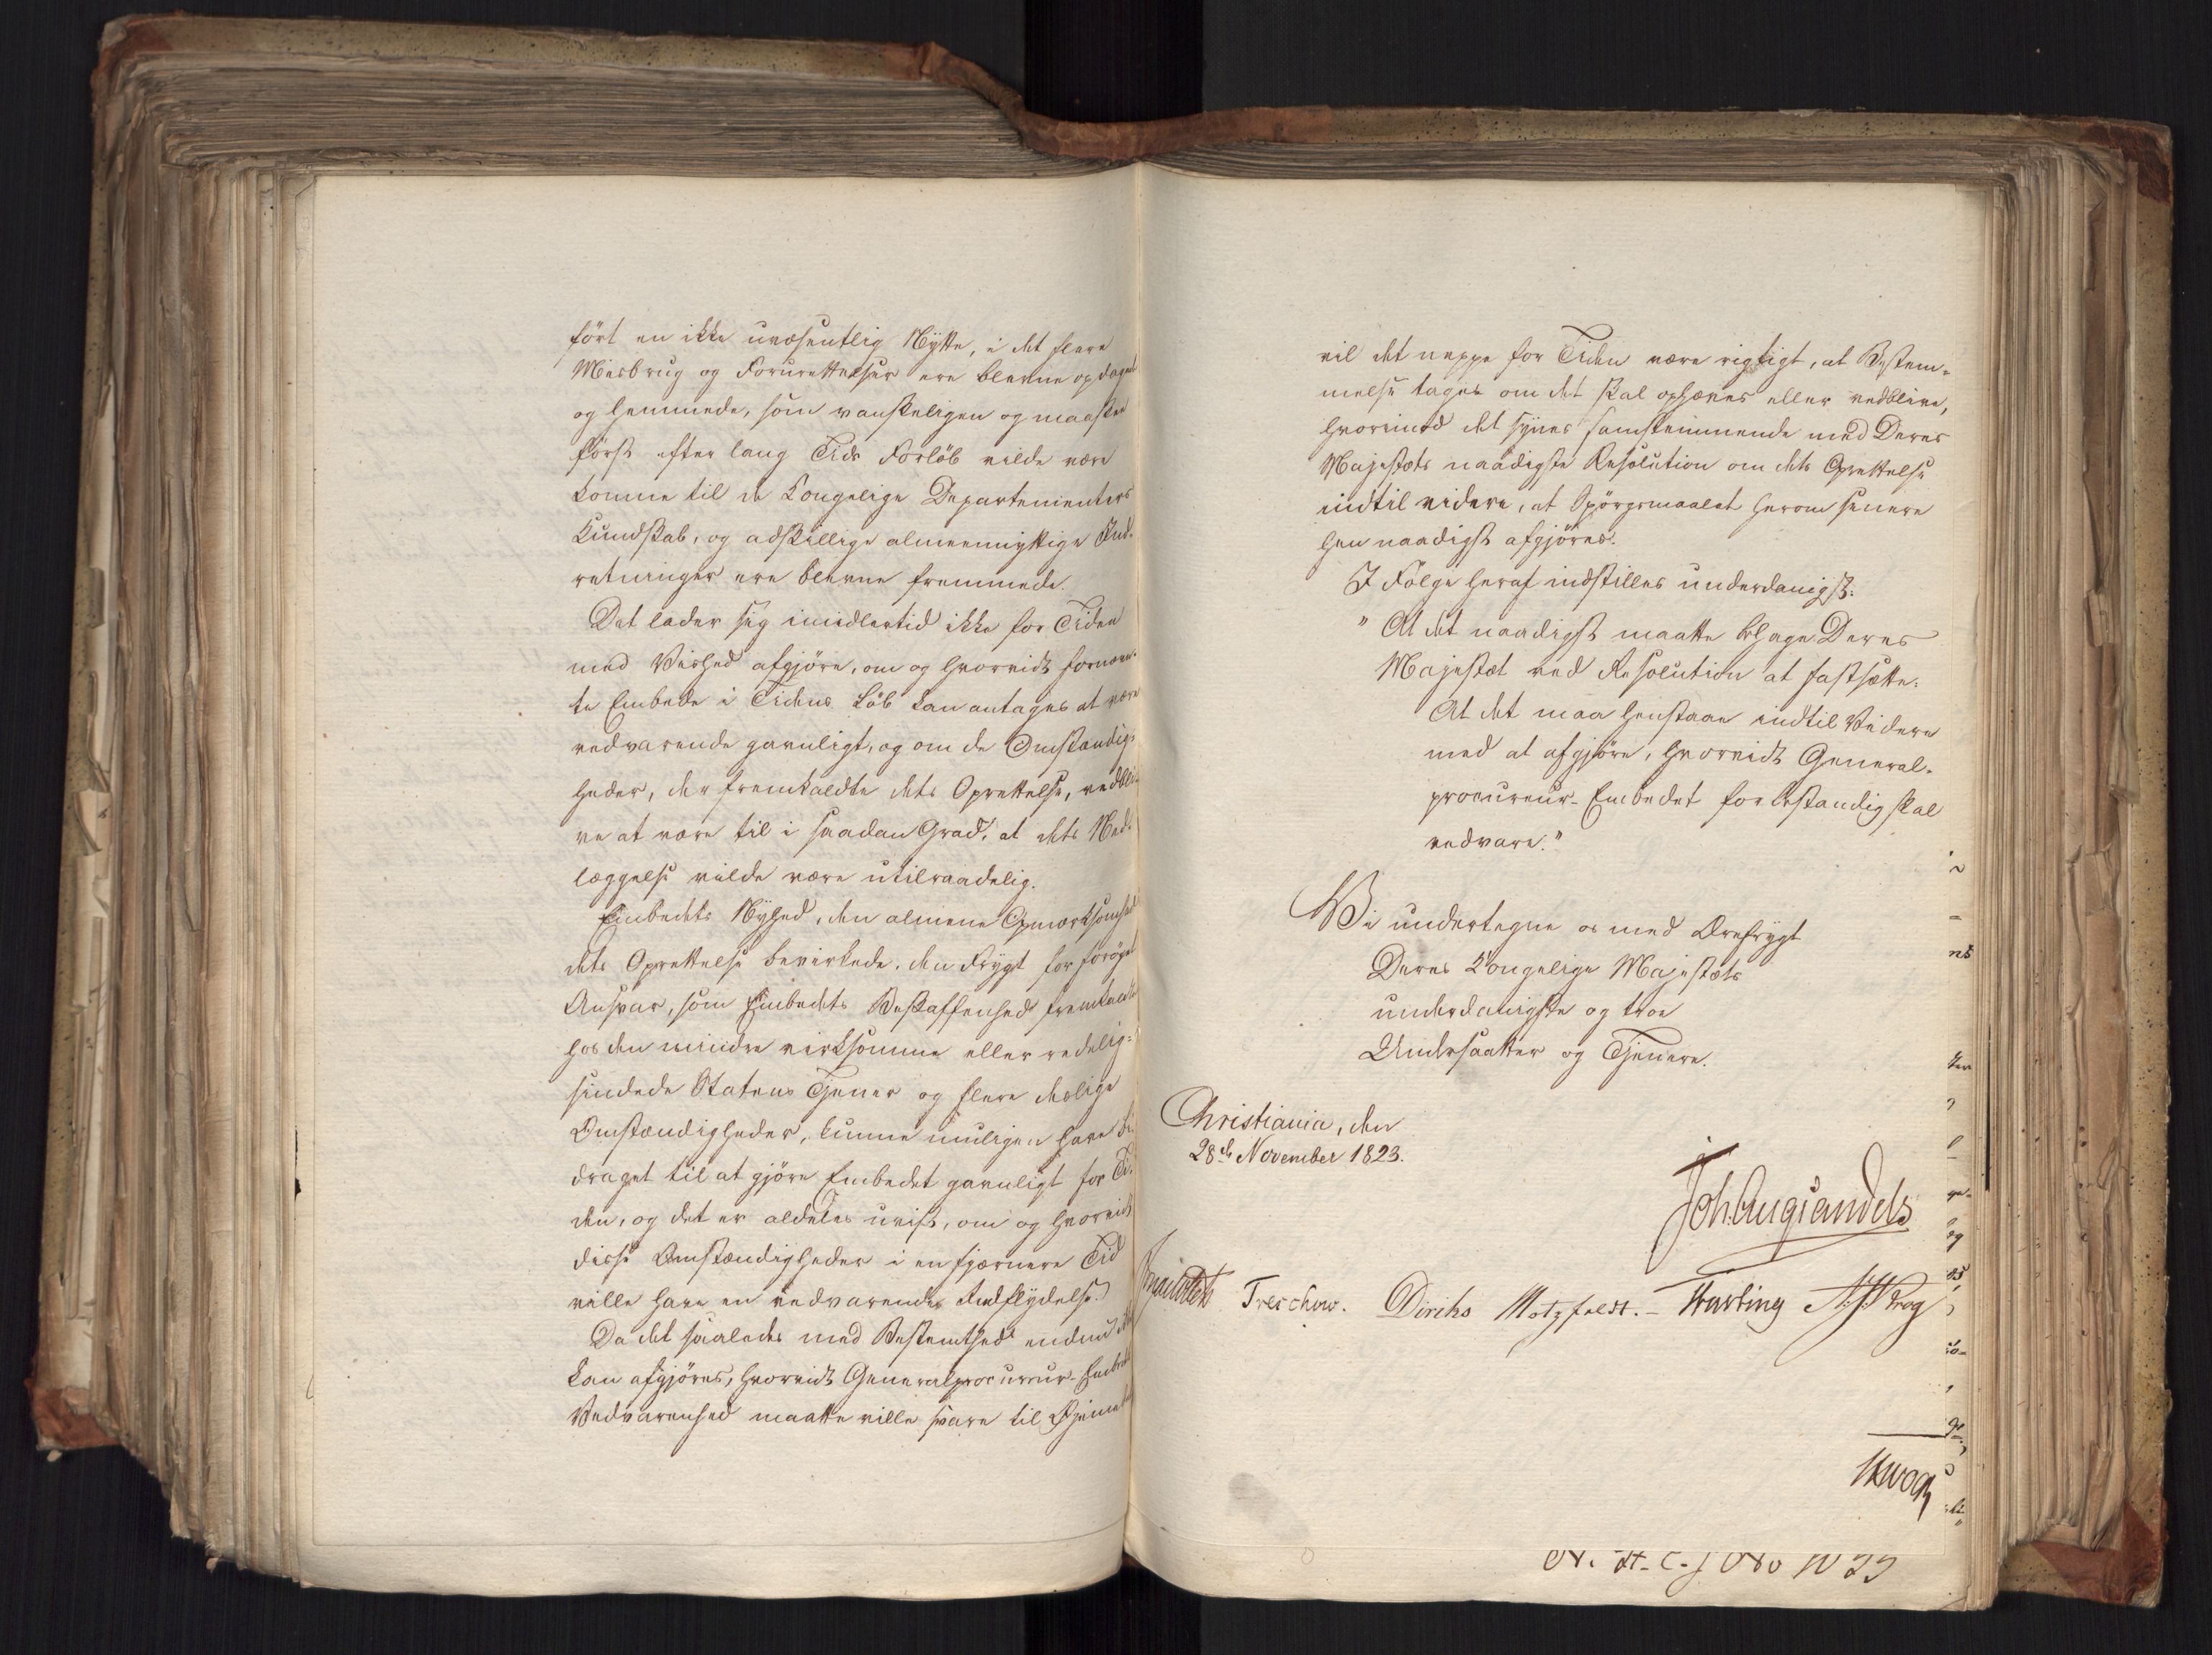 ført en ikke uvæsentlig Nytte, i det flere
Misbrug og Forurettelser ere blevne opdaget
og hemmede, som vanskeligen og maaskee
først efter lang Tids Forløb vilde være
komne til de Kongelige Departementers
Kundskab, og adskillige almeennyttige Ind-
retninger ere blevne fremmede.
Det lader sig imidlertid ikke for Tiden
med Vished afgjøre, om og hvorvidt fornævn-
te Embede i Tidens Løb kan antages at være
vedvarende gavnligt, og om de Omstændig-
heder, der fremkaldte dets Oprettelse, vedbli-
ve at være til i saadan Grad, at dets Ned-
læggelse vilde være utilraadelig.
Embedets Nyhed, den almene Opmærksomhed
dets Oprettelse bevirkede, den Frygt for forøget
Ansvar, som Embedets Beskaffenhed fremkaldte
hos den mindre virksomme eller redelig-
sindede Statens Tjener og flere deslige
Omstændigheder, kunne muligen have bi-
draget til at gjøre Embedet gavnligt for Ti-
den, og det er aldeles uvist, om og hvorvidt
disse Omstændigheder i en fjærnere Tid
ville have en vedvarende Indflydelse.
Da det saaledes med Bestemthed endnu ei
kan afgjøres, hvorvidt Generalprocureur-Embedets
Vedvarenhed maatte ville svare til Øjemedet
vil det neppe for Tiden være rigtigt, at Bestem-
melse tages om det skal ophæves eller vedblive,
hvorimod det synes samstemmende med Deres
Majestæts naadigste Resolution om dets Oprettelse
indtil videre, at Spørgsmaalet herom senere
hen naadigst afgjøres.
I Følge heraf indstilles underdanigst:
"At det naadigst maatte behage Deres
Majestæt ved Resolution at fastsætte:
At det maa henstaae indtil Videre
med at afgjøre, hvorvidt General-
procureur-Embedet for bestandig skal
vedvare."
Vi undertegne os med Ærefrygt
Deres Kongelige Majestæts
underdanigste og troe
Undersaatter og Tjenere.
Christiania, den
28de November 1823.
Joh. Aug. Sandels
Treschow. Diriks Motzfeldt. - Krog